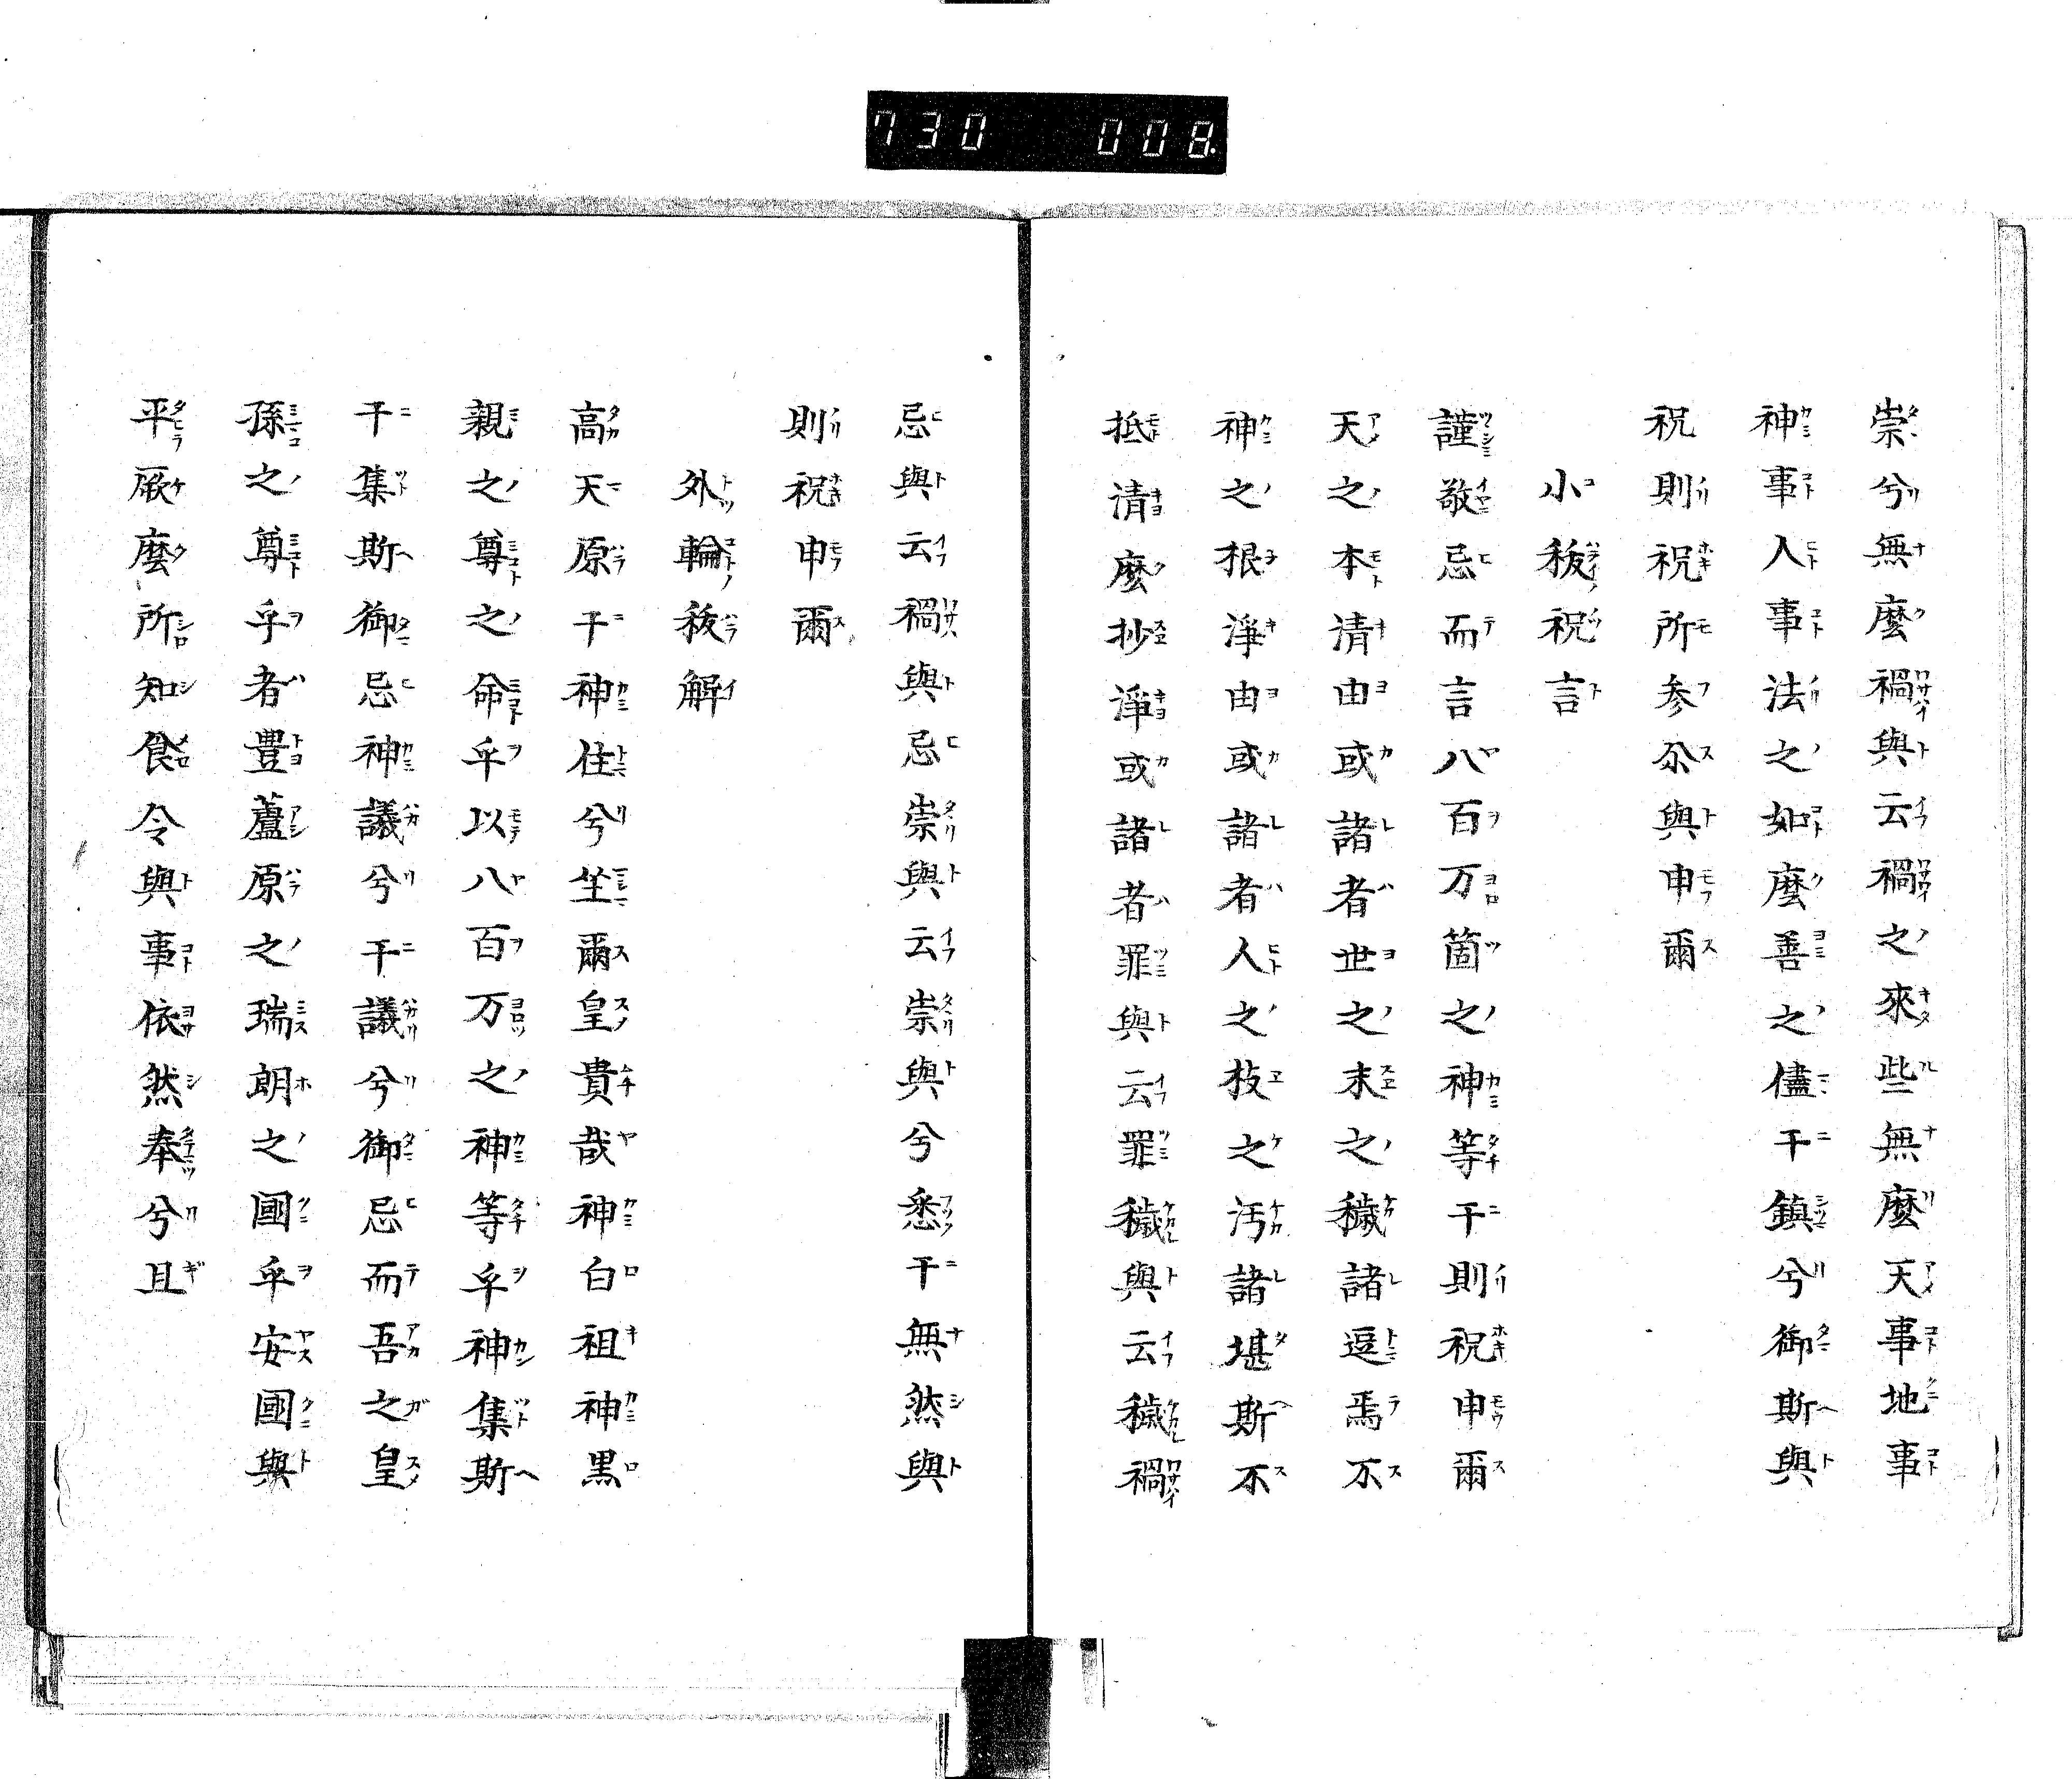 730 008.
崇兮無麼禍與云禍之來些無麼天事地事
神事人事法之如麼善之儘干鎮兮御斯與
祝則祝所参尒與申爾
小秡祝言
謹敬忌而言八百万箇之神等干則祝申爾
天之本清由或諸者世之末之穢諸逗焉不
神之根淨由或諸者人之枝之汚諸堪斯不
抵清麼抄淨或諸者罪與云罪穢與云穢禍
忌與云禍與忌崇與云崇與兮悉干無然與
則祝申爾
外輪秡解
高天原干神住兮坐爾皇貴哉神白祖神黒
親之尊之命乎以八百万之神等乎神集斯
干集斯御忌神議兮干議兮御忌而吾之皇
孫之尊乎者豊蘆原之瑞朗之國乎安國與
平厥麼所知食令與事依然奉兮且